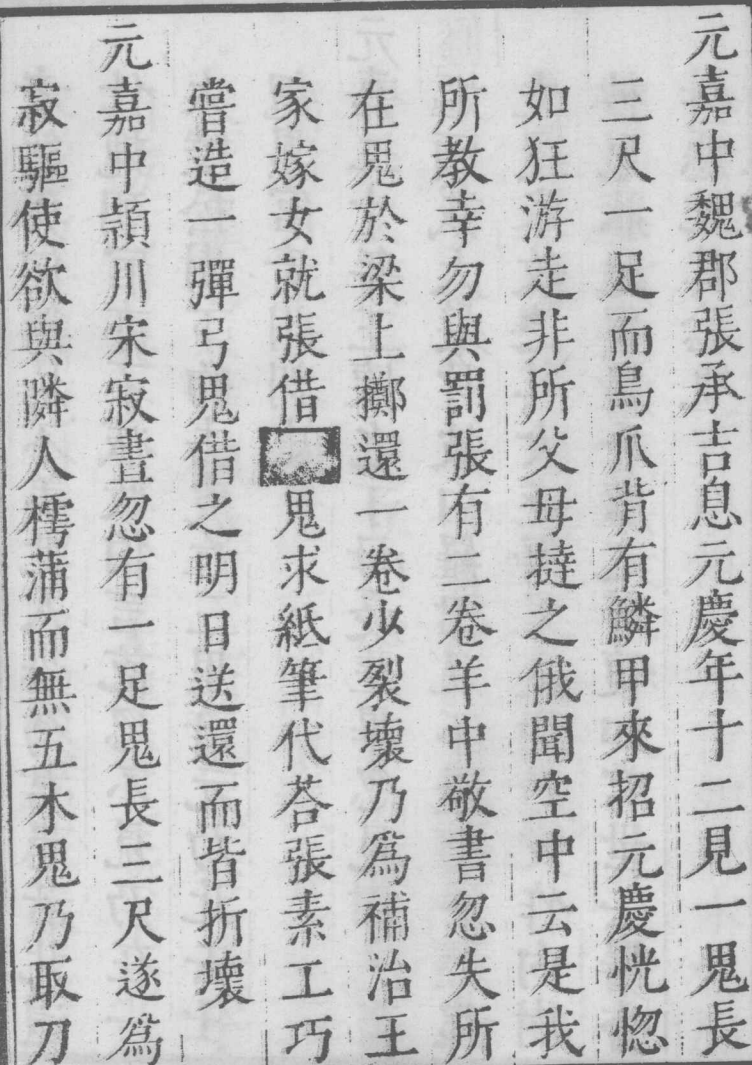 元嘉中魏郡張承吉息元慶年十二見一鬼長
三尺一足而鳥爪背有鱗甲來招元慶恍惚
如狂游走非所父母撻之俄聞空中云是我
所教幸勿與罰張有二卷羊中敬書忽失所
在鬼於梁上擲還一卷少裂壞乃爲補治王
家嫁女就張借鬼求紙筆代荅張素工巧
嘗造一彈弓鬼借之明日送還而皆折壞
元嘉中頴川宋寂晝忽有一足鬼長三尺遂爲
寂驅使欲與隣人樗蒲而無五木鬼乃取刀